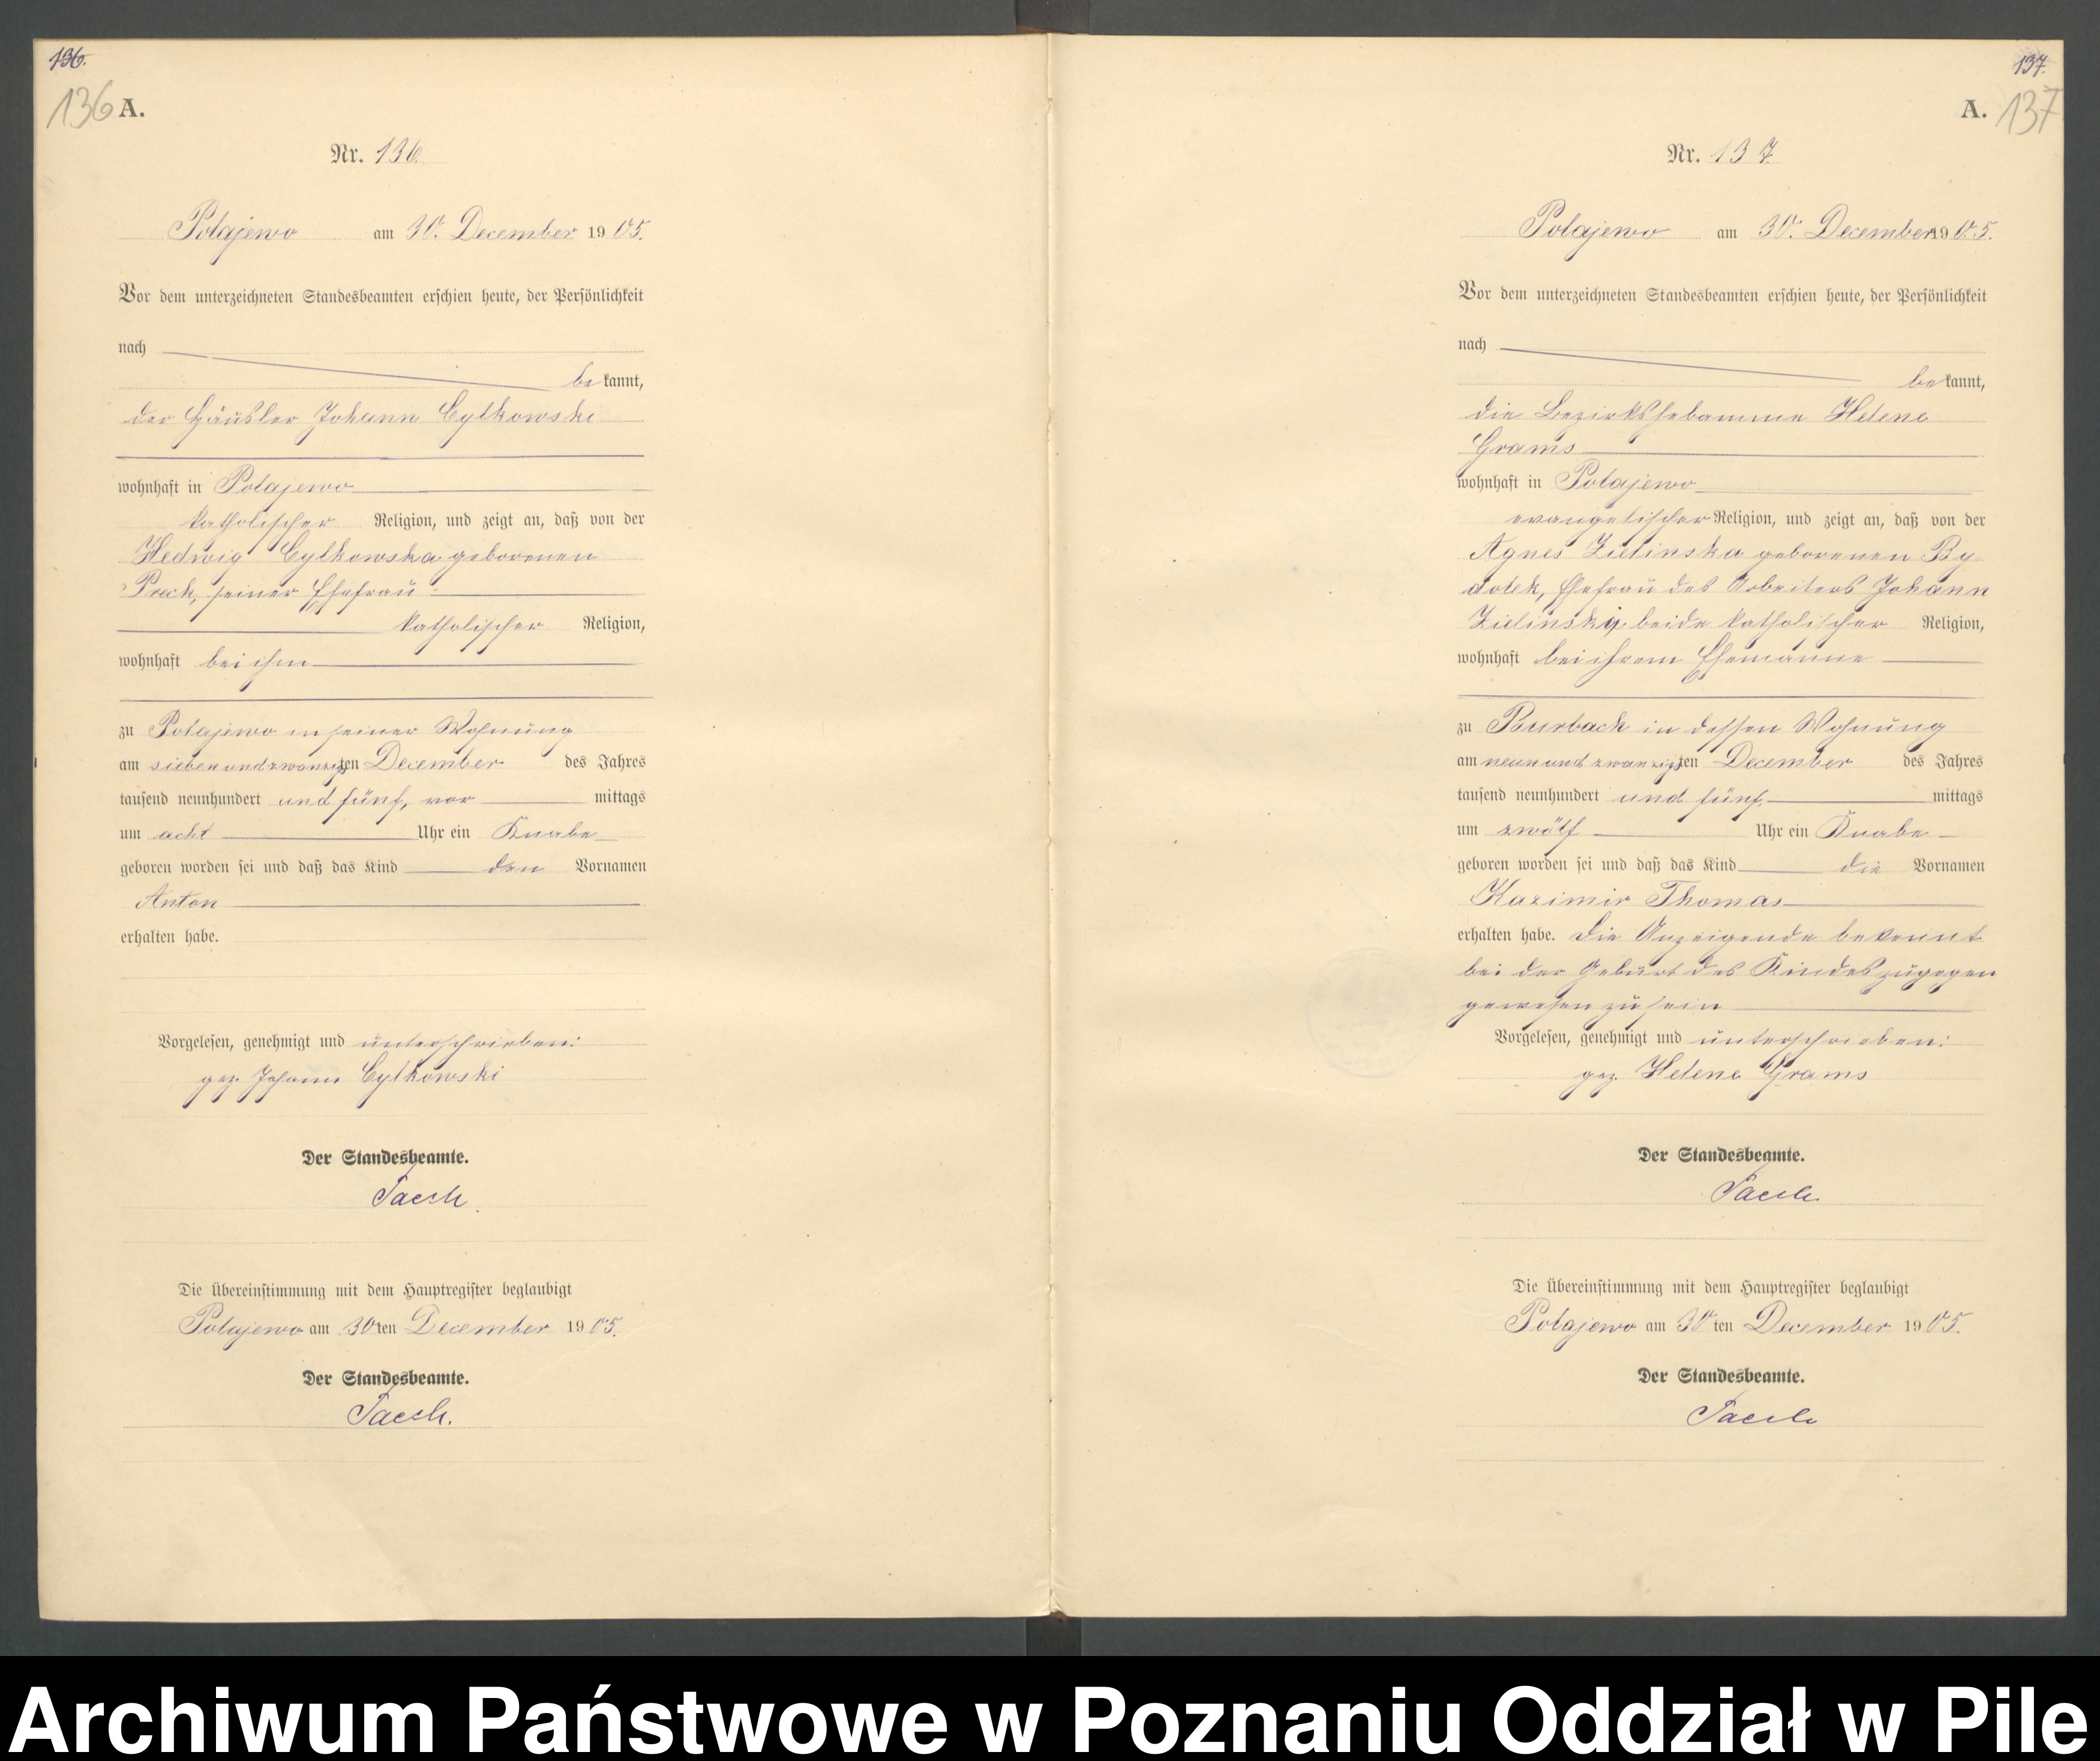 136.
136 A.
Nr. 136.
Polajewo am 30. December 1905.
Vor dem unterzeichneten Standesbeamten erschien heute, der Persönlichkeit
nach
bekannt,
der Häusler Johann Cylkowski
wohnhaft in Polajewo
katholischer Religion, und zeigt an, daß von der
Hedwig Cylkowska geborenen
Preck, seiner Ehefrau
katholischer Religion,
wohnhaft bei ihm
zu Polajewo in seiner Wohnung
am siebenundzwanzigsten December des Jahres
tausend neunhundert und fünf, vor mittags
um acht Uhr ein Knabe
geboren worden sei und daß das Kind den Vornamen
Anton
erhalten habe.
Vorgelesen, genehmigt und unterschrieben:
gez. Johann Cylkowski
Der Standesbeamte.
Die Übereinstimmung mit dem Hauptregister beglaubigt
Polajewo am 30ten December 1905.
Der Standesbeamte.
137.
A. 137
Nr. 137
Polajewo am 30. December 1905.
Vor dem unterzeichneten Standesbeamten erschien heute, der Persönlichkeit
nach
bekannt,
die Bezirkshebamme Helene
Grams
wohnhaft in Polajewo
evangelischer Religion, und zeigt an, daß von der
Agnes Zielinska geborenen By-
dolek, Ehefrau des Arbeiters Johann
Zielinski, beide katholischer Religion,
wohnhaft bei ihrem Ehemanne
zu Burbach in dessen Wohnung
am neunundzwanzigsten December des Jahres
tausend neunhundert und fünf, mittags
um zwölf Uhr ein Knabe
geboren worden sei und daß das Kind die Vornamen
Kazimir Thomas
erhalten habe. Die Anzeigende bekennt
bei der Geburt des Kindes zugegen
gewesen zu sein
Vorgelesen, genehmigt und unterschrieben:
gez. Helene Grams
Der Standesbeamte.
Die Übereinstimmung mit dem Hauptregister beglaubigt
Polajewo am 30ten December 1905.
Der Standesbeamte.
Archiwum Państwowe w Poznaniu Oddział w Pile